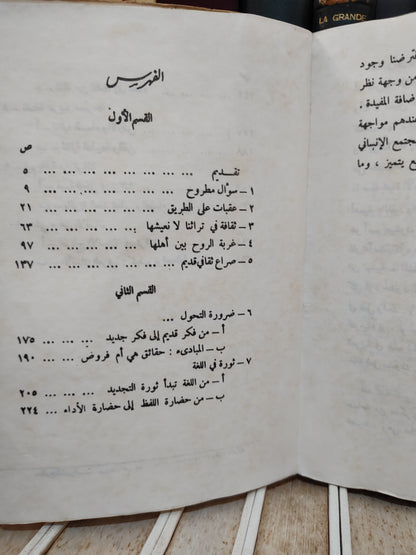 LA GRANDE
الفهرس
القسم الأول
ص
تقديم ... ... ... ... ... ... ... ... ٥
١ – سؤال مطروح ... ... ... ... ... ... ٩
٢ – عقبات على الطريق ... ... ... ... ... ٢١
٣ – ثقافة في تراثنا لا نعيشها ... ... ... ... ٦٣
٤ – غربة الروح بين أهلها ... ... ... ... ٩٧
٥ – صراع ثقافي قديم ... ... ... ... ... ... ١٣٧
القسم الثاني
٦ – ضرورة التحول ...
أ – من فكر قديم إلى فكر جديد ... ... ١٧٥
ب – المبادىء : حقائق هي أم فروض ... ... ١٩٠
٧ – ثورة في اللغة
أ – من اللغة تبدأ ثورة التجديد ... ... ... ٢٠٥
ب – من حضارة اللفظ إلى حضارة الأداء ... ٢٢٤
وجود
من وجهة نظر
المفيدة .
مواجهة
الإنساني
يتميز ، وما